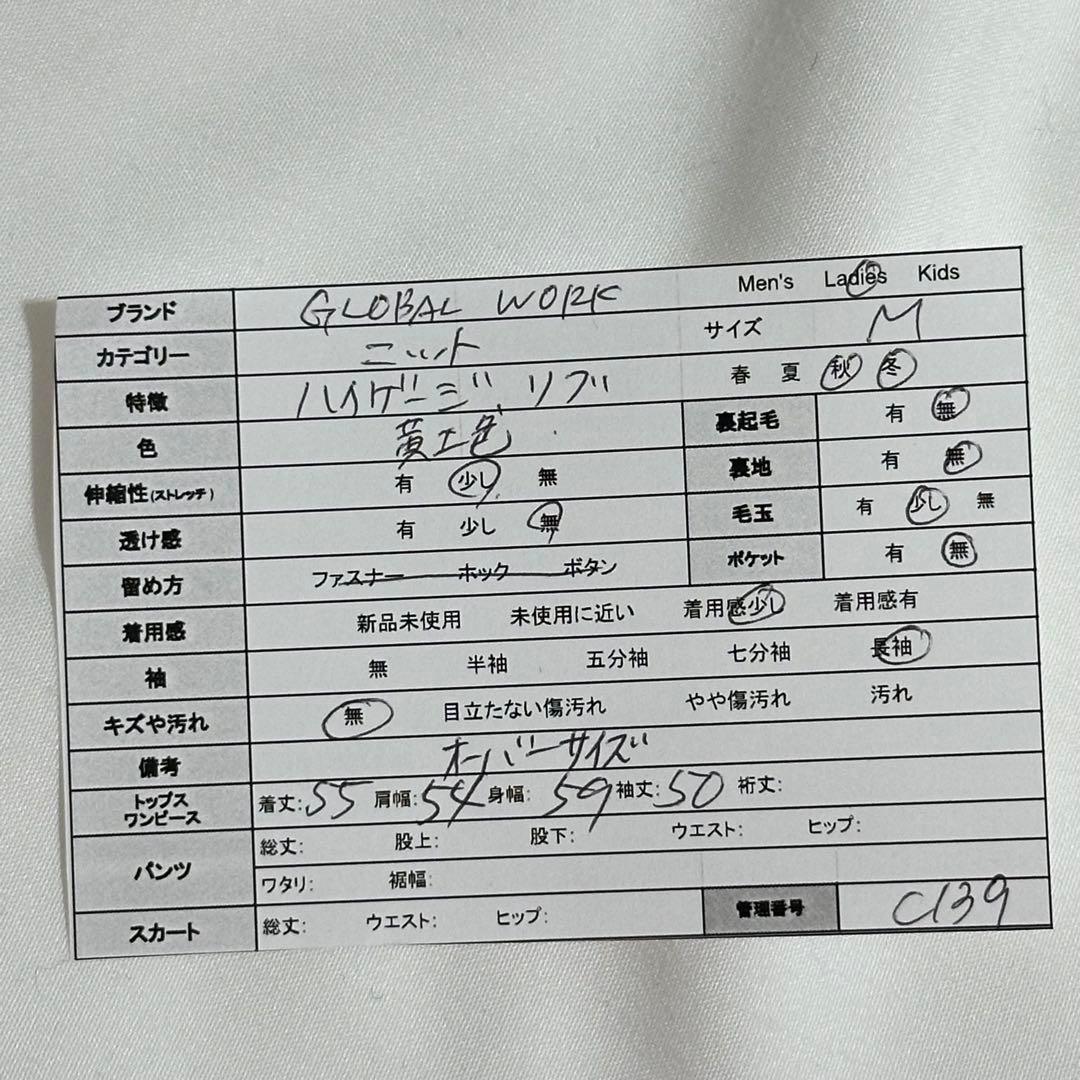 ブランド GLOBAL WORK Men's Ladies Kids
カテゴリー ニット サイズ M
特徴 ハイゲージ、リブ 春 夏 秋 冬
色 黄土色 裏起毛 有 無
伸縮性(ストレッチ) 有 少し 無 裏地 有 無
透け感 有 少し 無 毛玉 有 少し 無
留め方 ファスナー ホック ボタン ポケット 有 無
着用感 新品未使用 未使用に近い 着用感少し 着用感有
袖 無 半袖 五分袖 七分袖 長袖
キズや汚れ 無 目立たない傷汚れ やや傷汚れ 汚れ
備考 オーバーサイズ
トップス ワンピース 着丈:55 肩幅:54 身幅:59 袖丈:50 裄丈:
パンツ 総丈: 股上: 股下: ウエスト: ヒップ:
ワタリ: 裾幅:
スカート 総丈: ウエスト: ヒップ: 管理番号 C139